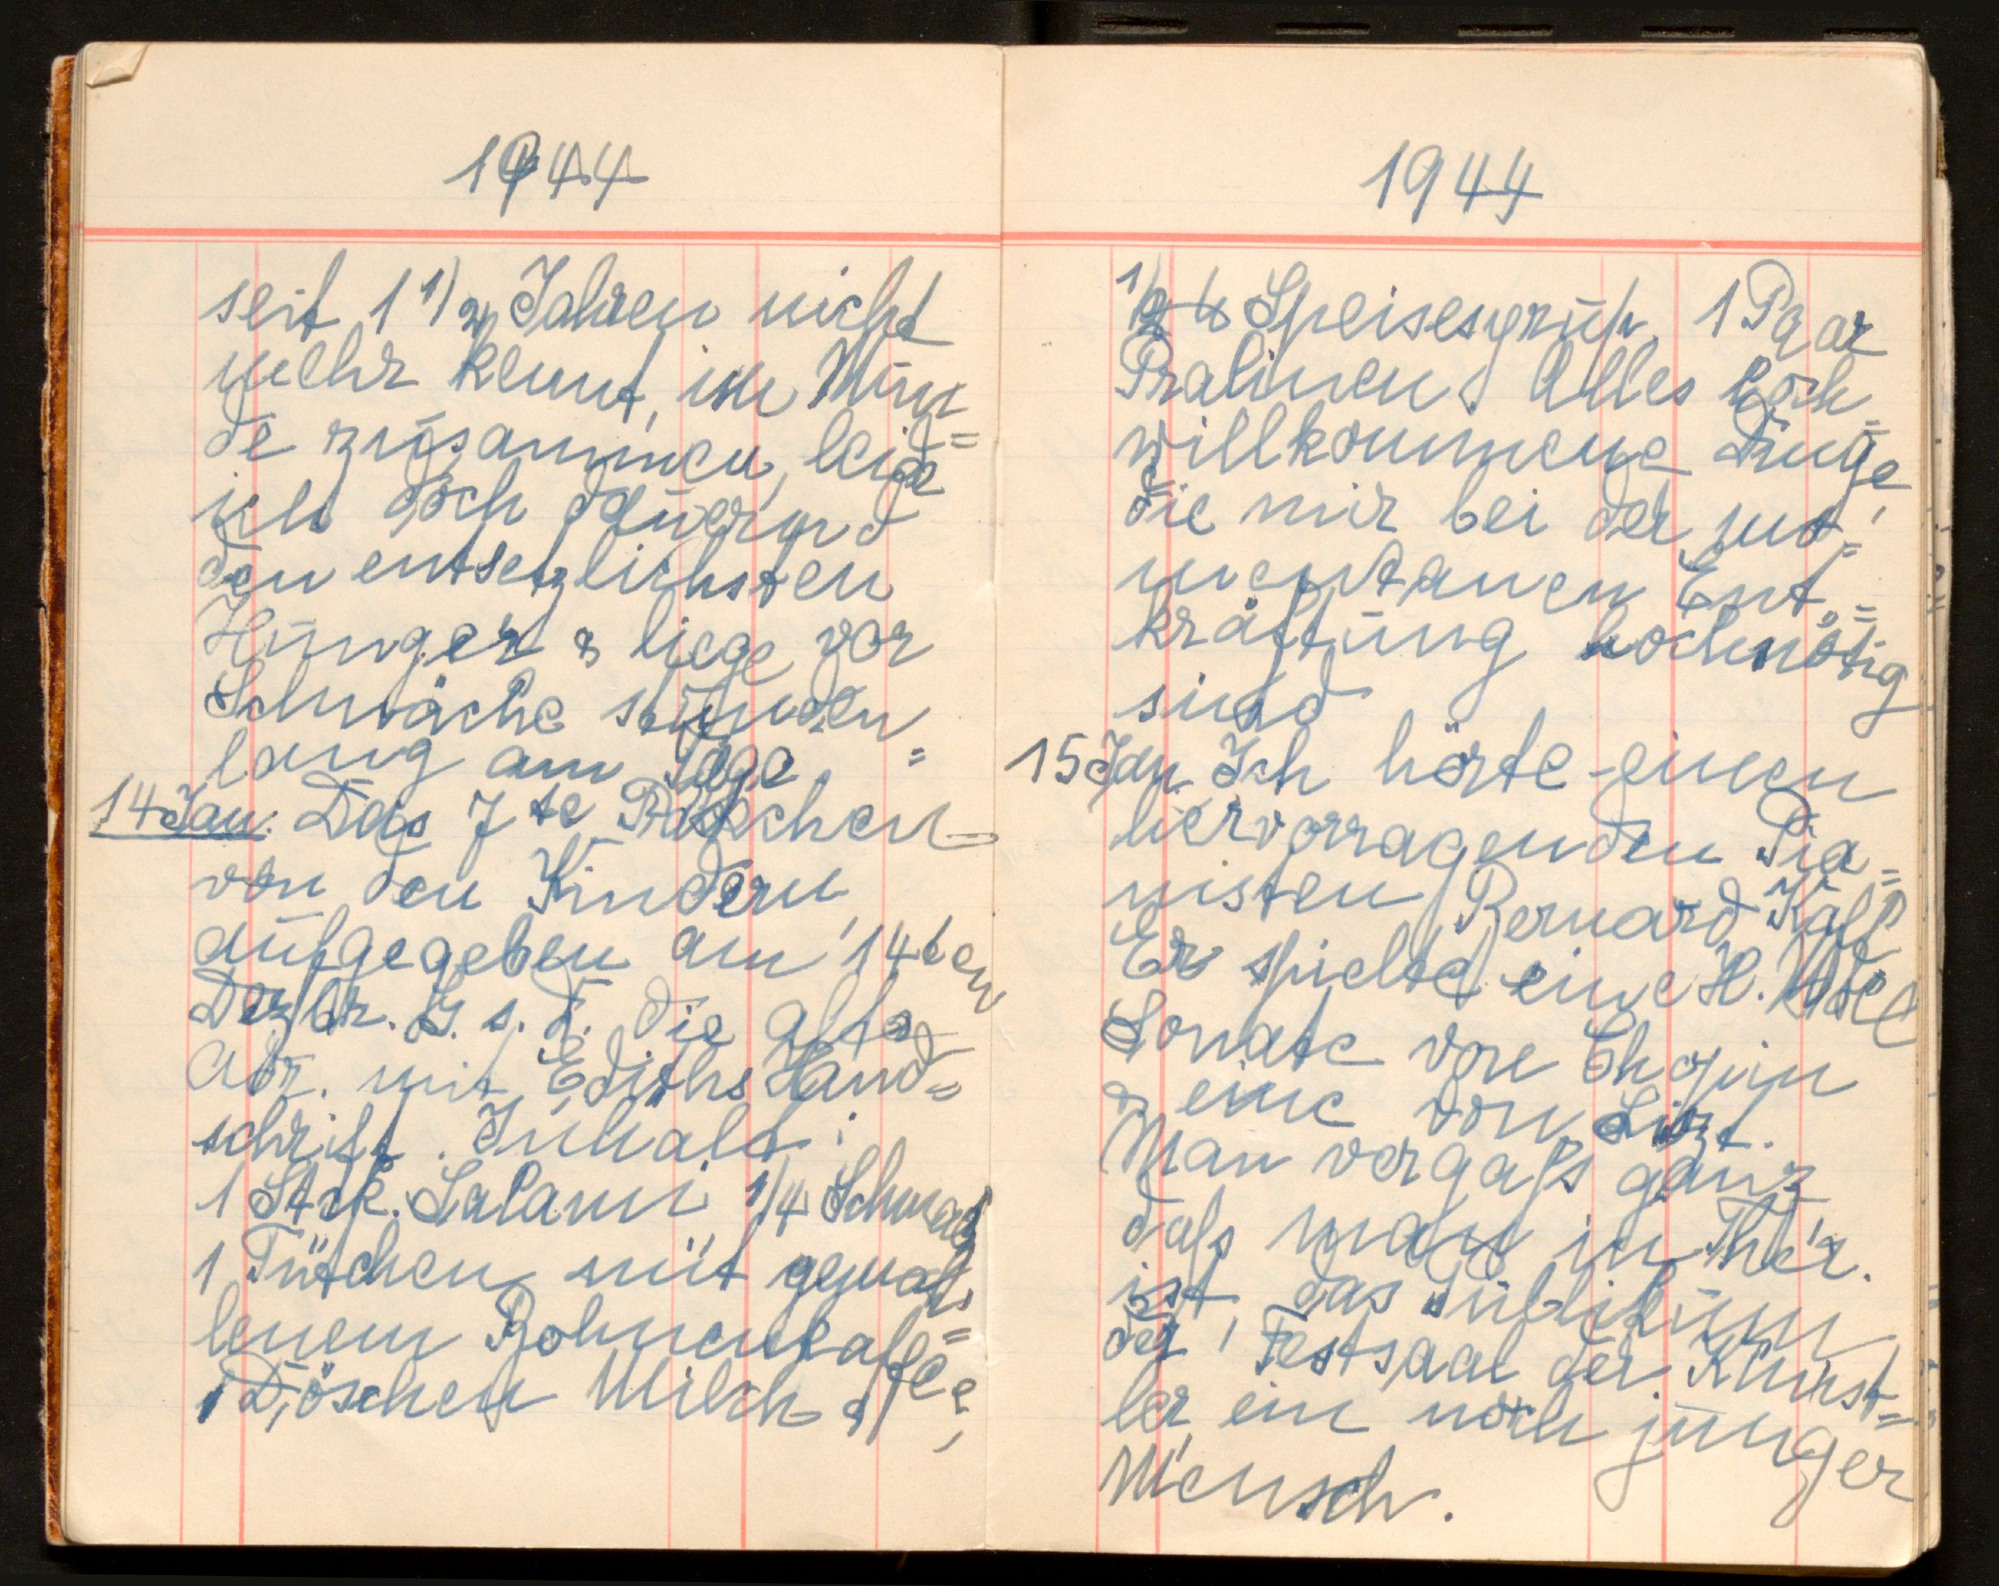 1944
seit 1 1/2 Jahren nicht
mehr kennt, im Mun=
de zusammen, leide
ich doch dauernd
den entsetzlichsten
Hunger & liege vor
Schwäche stunden=
lang am Tage.
14 Jan. Das 7te Päckchen
von den Kindern
aufgegeben am 14ten
Dezbr. G. s. D. die alte
Adr. mit Ediths Hand=
schrift. Inhalt:
1 Stck. Salami 1/4 Schmalz
1 Tütchen mit gemah=
lenem Bohnenkaffee,
1 Döschen Milch &
1944
1/2 ℔ Speisesyrup, 1 Paar
Pralinen. Alles hoch=
willkommene Dinge,
die mir bei der mo=
mentanen Ent=
kräftung hochnötig
sind
15 Jan. Ich hörte einen
hervorragenden Pia=
nisten Bernard Kaff
Er spielte eine H. Moll
Sonate von Chopin
& eine von Lizt.
Man vergaß ganz
daß man in Ther.
ist, das Publikum,
der Festsaal der Künst=
ler, ein noch junger
Mensch.